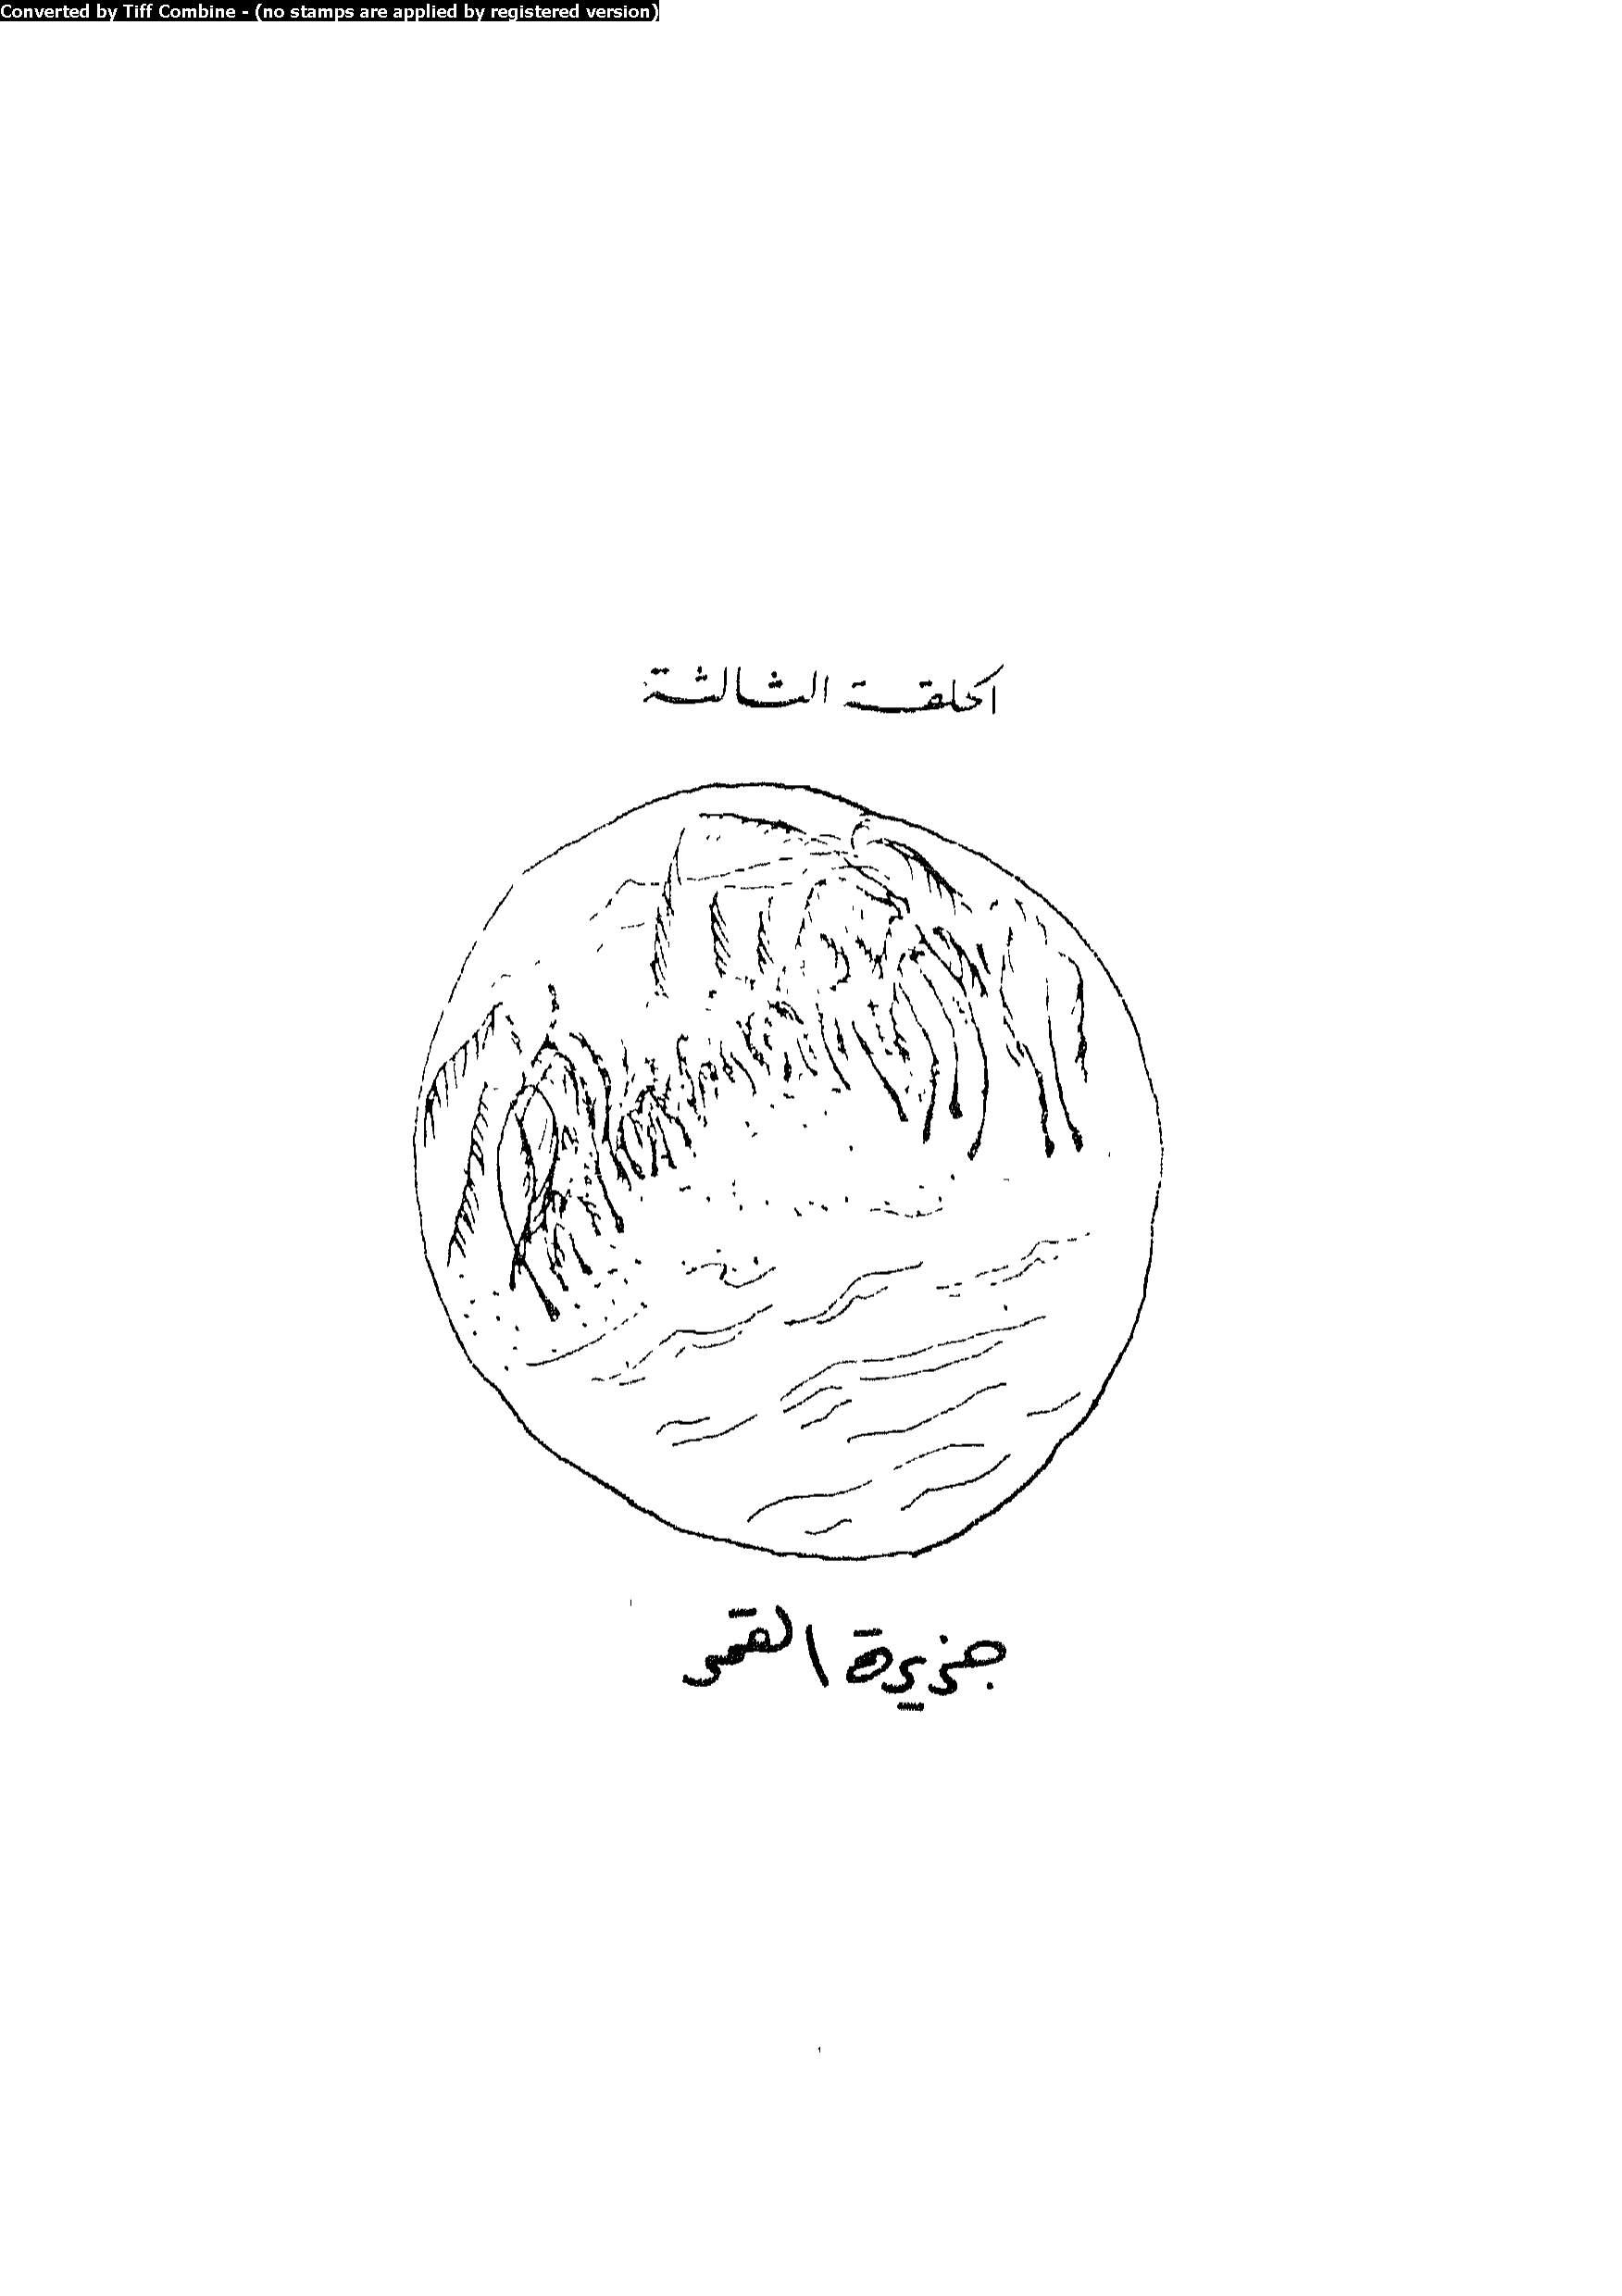 Converted by Tiff Combine - (no stamps are applied by registered version)
الحلقة الثالثة
جزيرة القمر